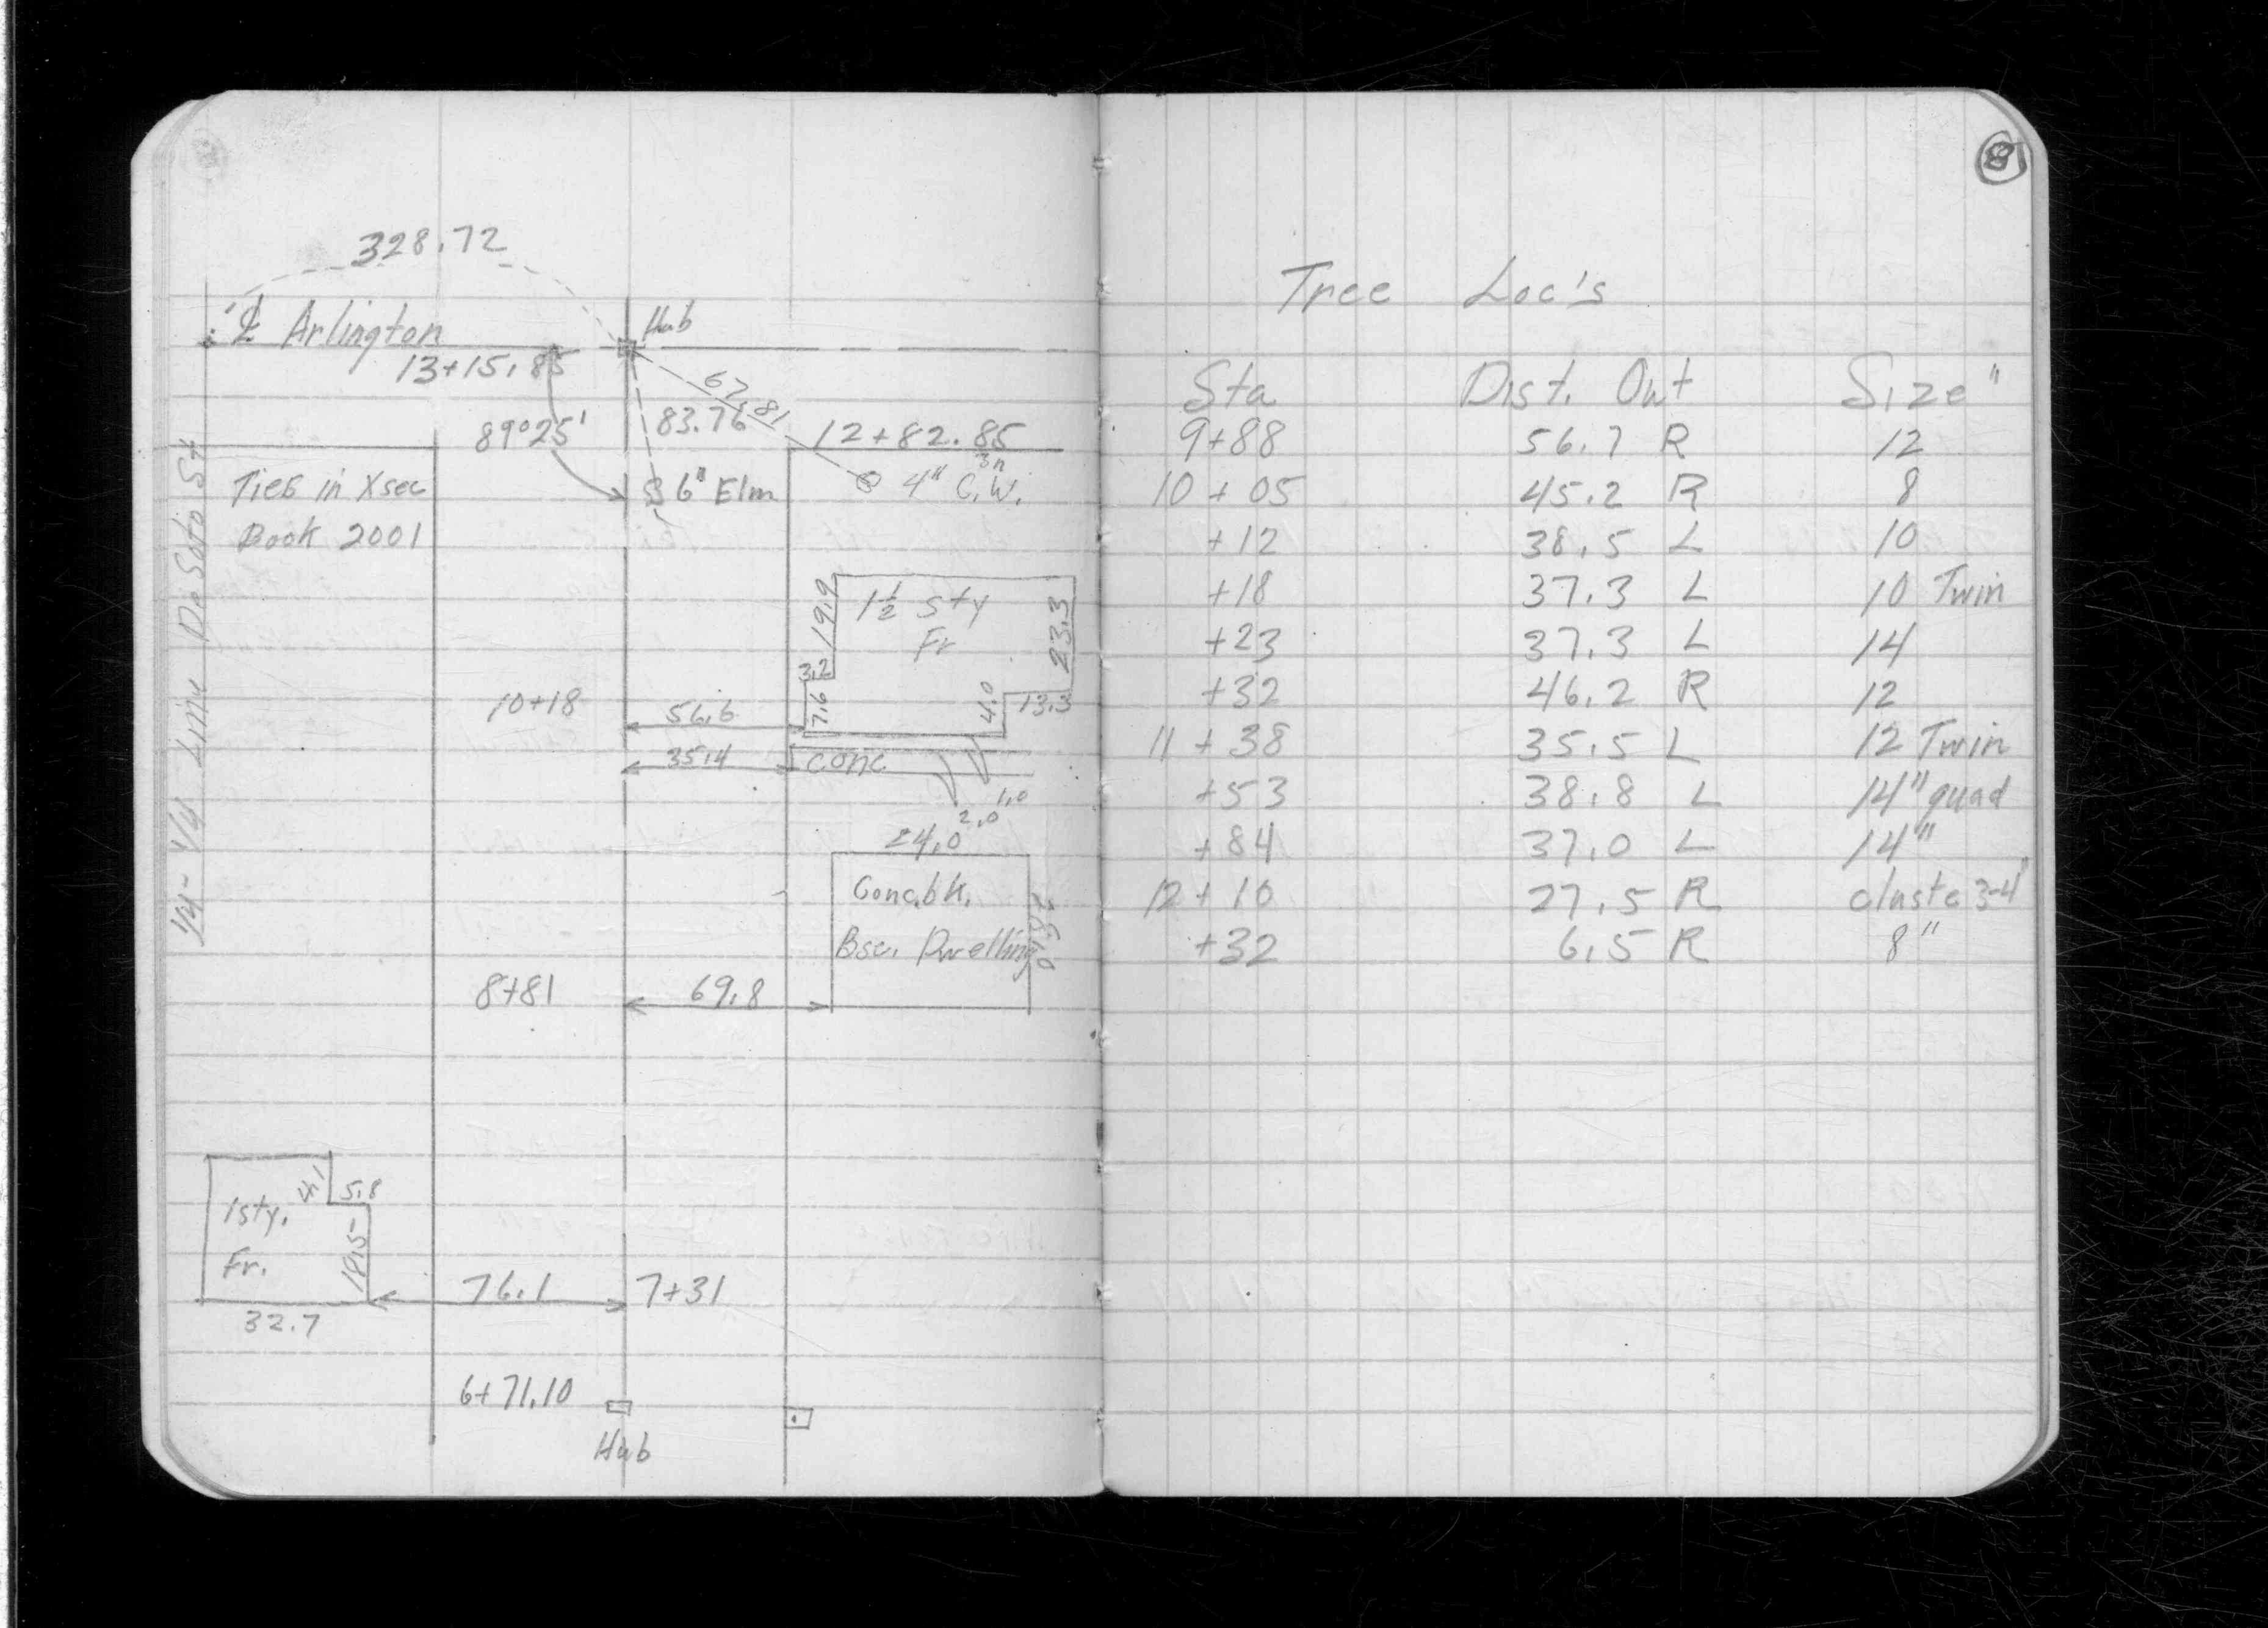 328.72
℄ Arlington
Hub
13+15.85
67.81
89°25'
83.76
12+82.85
Ties in Xsec
6" Elm
3n
4" C.W.
Book 2001
1/4-1/4 Line DeSoto St
19.9
1½ sty
Fr
23.3
3.2
7.6
4.0
13.3
10+18
56.6
35.4
conc
1.0
2.0
24.0
Conc. bk.
Bse. Dwelling
8+81
69.8
4.1
5.8
1 sty.
Fr.
18.5
76.1
7+31
32.7
6+71.10
Hub
8
Tree Loc's
Sta Dist. Out Size"
9+88 56.7 R 12
10+05 45.2 R 8
+12 38.5 L 10
+18 37.3 L 10 Twin
+23 37.3 L 14
+32 46.2 R 12
11+38 35.5 L 12 Twin
+53 38.8 L 14" quad
+84 37.0 L 14"
12+10 27.5 R cluste 3-4"
+32 6.5 R 8"